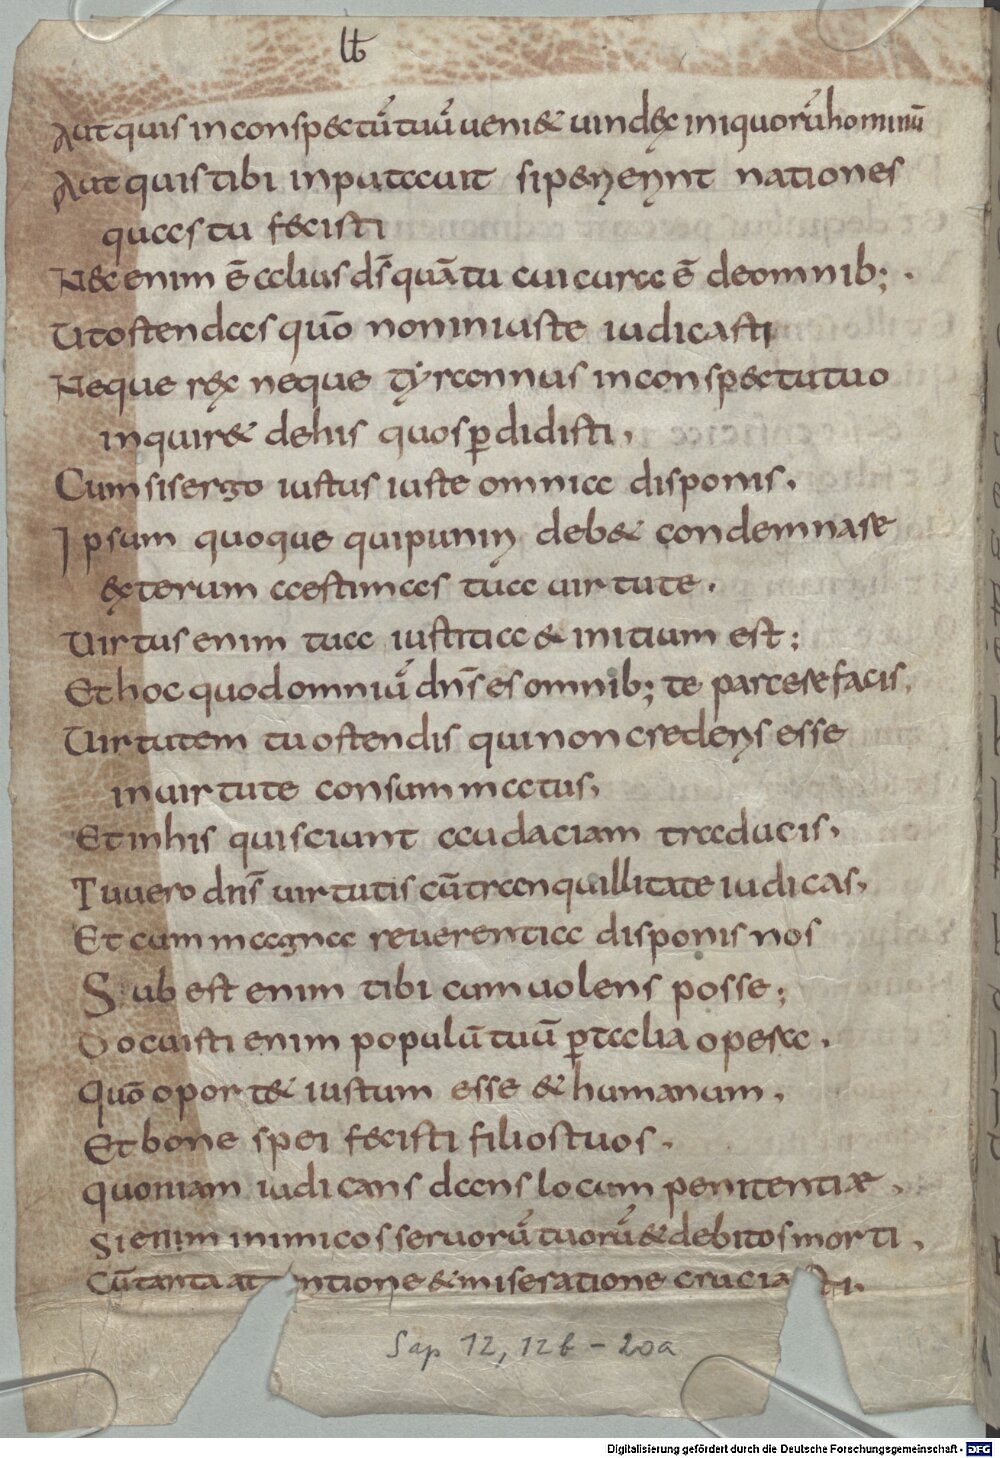 lƀ
Aut quis in conspectū tuū ueni& uindex iniquorū hominū
Aut quis tibi inputauit si perierint nationes
quas tu fecisti
Nec enim ē alius ds̄ quā tu cui cura ē de omnib; .
Ut ostendas quō non iniuste iudicasti
Neque rex neque tyrannus in conspectu tuo
inquir& de his quos ꝑdidisti,
Cum sis ergo iustus iuste omnia disponis,
Ipsum quoque qui puniri deb& condemnare
exterum aestimas tua uirtute .
Uirtus enim tua iustitia & initium est ;
Et hoc quod omniū dns̄ es omnib; te parcere facis,
Uirtutem tu ostendis qui non crederis esse
in uirtute consummatus,
Et in his qui sciunt audaciam traducis,
Tu uero dns̄ uirtutis cū tranquillitate iudicas,
Et cum magna reuerentia disponis nos
Subest enim tibi cum uolens posse ;
Docuisti enim populū tuū ꝑ talia opera ,
Quō oport& iustum esse & humanum ,
Et bone spei fecisti filios tuos .
quoniam iudicans dans locum penitentiæ ,
Si enim inimicos seruorū tuorū & debitos morti ,
Cū tanta at ntione & miseratione crucia sti,
Sap 12, 12b - 20a
Digitalisierung gefördert durch die Deutsche Forschungsgemeinschaft - DFG